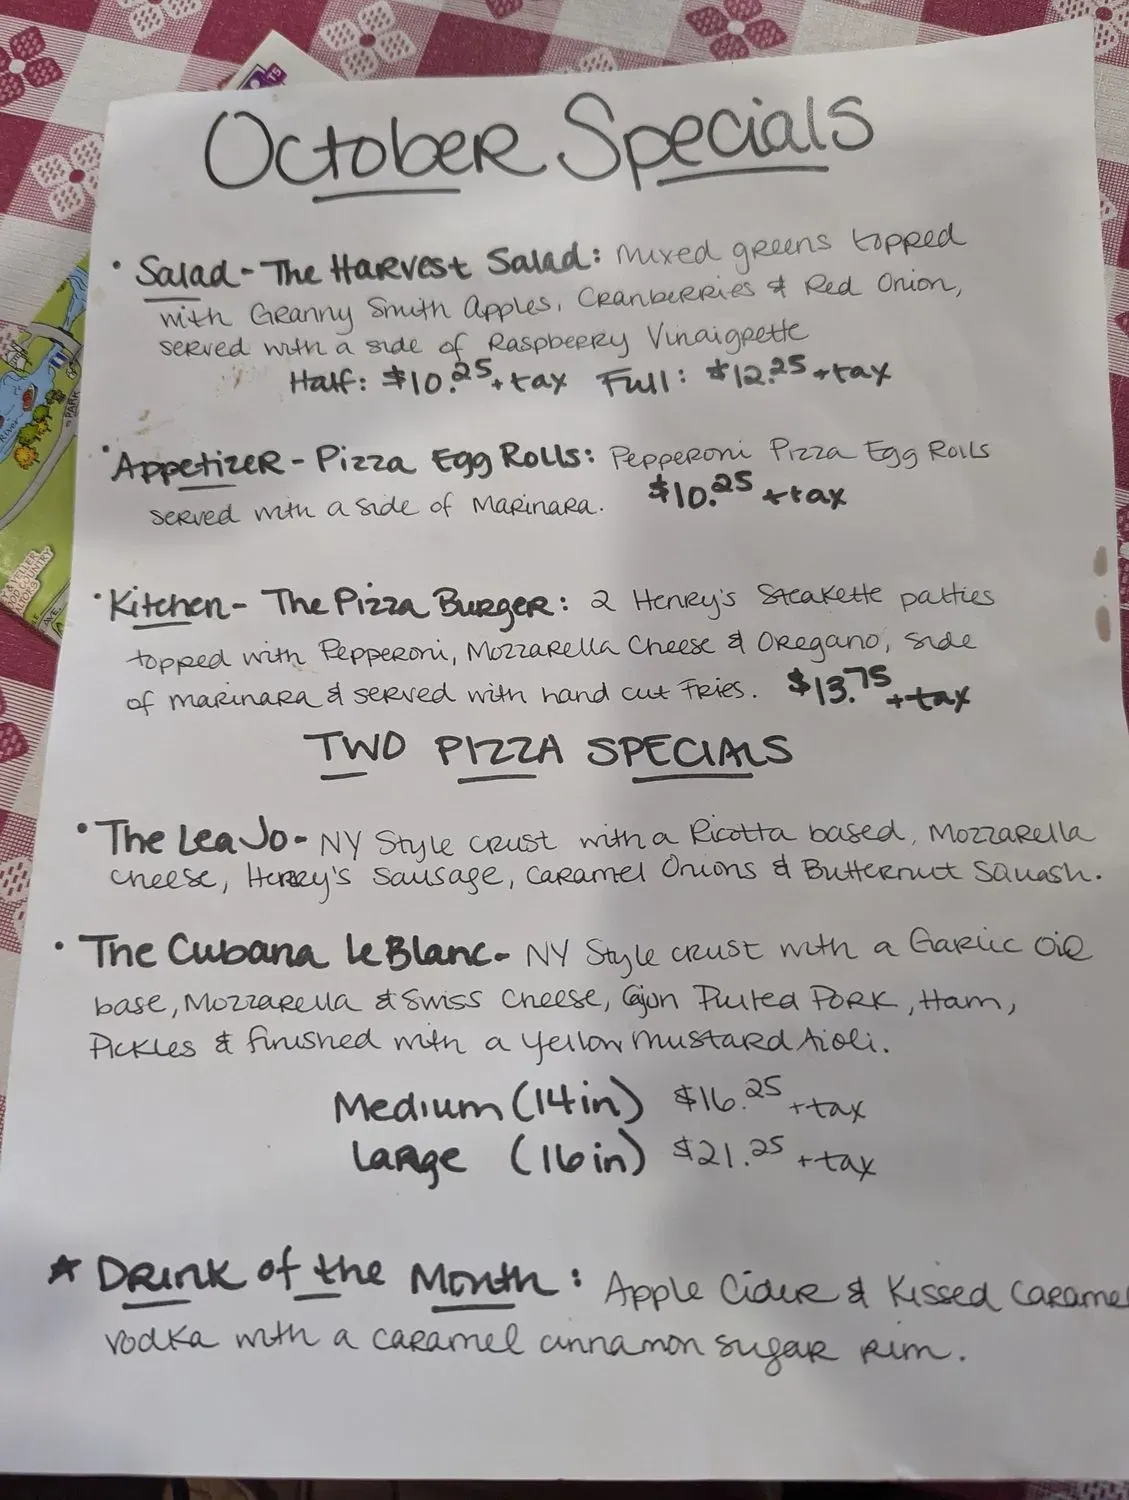 October Specials
• Salad - The Harvest Salad: Mixed greens topped
with Granny Smith Apples, Cranberries & Red Onion,
served with a side of Raspberry Vinaigrette
Half: $10.25 + tax Full: $12.25 + tax
• Appetizer - Pizza Egg Rolls: Pepperoni Pizza Egg Rolls
served with a side of Marinara. $10.25 + tax
• Kitchen - The Pizza Burger: 2 Henry's Steakette patties
topped with Pepperoni, Mozzarella Cheese & Oregano, side
of marinara & served with hand cut Fries. $13.75 + tax
TWO PIZZA SPECIALS
• The Lea Jo - NY Style crust with a Ricotta based, Mozzarella
cheese, Henry's Sausage, Caramel Onions & Butternut Squash.
• The Cubana LeBlanc - NY Style crust with a Garlic Oil
base, Mozzarella & Swiss Cheese, Cajun Pulled Pork, Ham,
Pickles & finished with a Yellow Mustard Aioli.
Medium (14in) $16.25 + tax
Large (16in) $21.25 + tax
★ Drink of the Month: Apple Cider & Kissed Carame
vodka with a caramel cinnamon sugar rim.
T5
River
PARK
AVE.